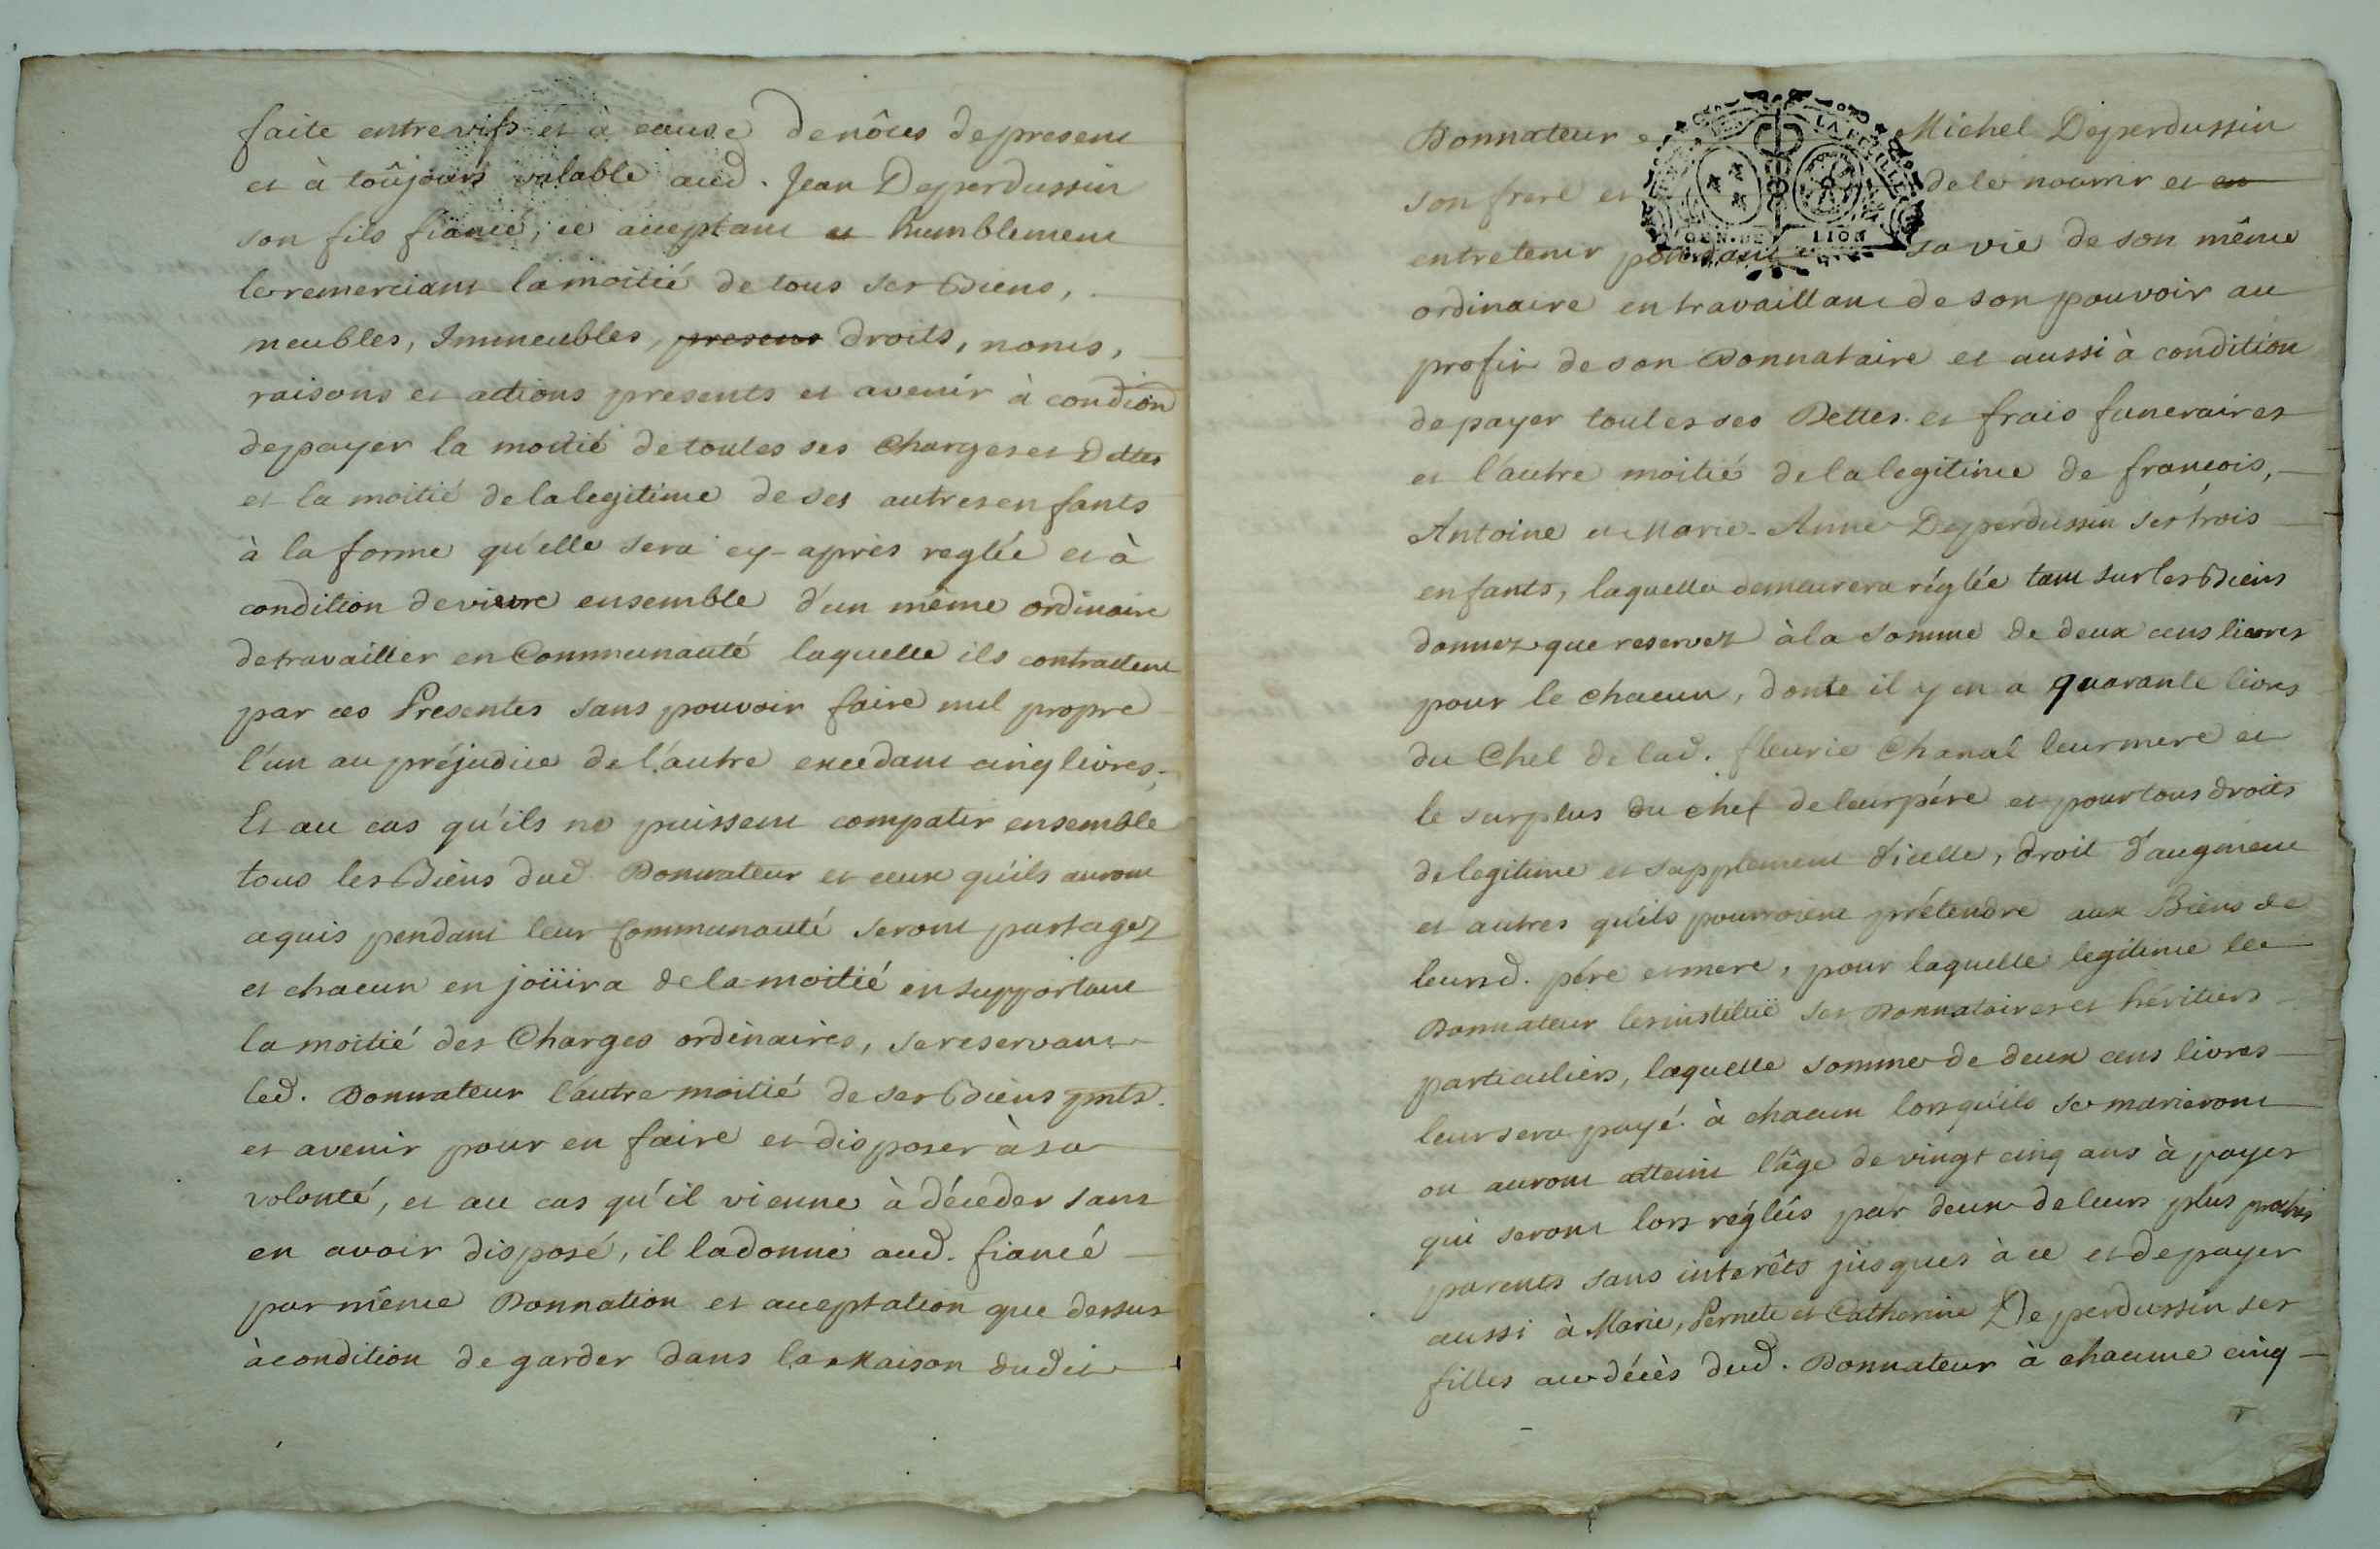 faite entrevifs et à cause de nôces de present
et à toûjours valable aud. Jean Deperdussin
son fils fiancé, ce acceptant et humblement
le remerciant la moitié de tous ses Biens,
meubles, Immeubles, presens droits, noms,
raisons et actions presents et avenir à condion
de payer la moitié de toutes ses Charges et Dettes
et la moitié de la legitime de ses autres enfants
à la forme qu'elle sera cy-après reglée et à
condition de vivre ensemble d'un même ordinaire
de travailler en Communauté laquelle ils contractent
par ces Presentes sans pouvoir faire nul propre
l'un au préjudice de l'autre excedant cinq livres,
Et au cas qu'ils ne puissent compatir ensemble
tous les Biens dud. Donnateur et ceux qu'ils auront
aquis pendant leur Communauté seront partagez
et chacun en joüira de la moitié en supportant
la moitié des Charges ordinaires, se reservant
led. Donnateur l'autre moitié de ses Biens pnts.
et avenir pour en faire et disposer à sa
volonté, et au cas qu'il vienne à déceder sans
en avoir disposé, il la donne aud. fiancé
par même Donnation et acceptation que dessus
à condition de garder dans la Maison dudit
Donnateur Michel Deperdussin
son frere et de le nourrir et en
entretenir pendant sa vie de son même
ordinaire en travaillant de son pouvoir au
profit de son Donnataire et aussi à condition
de payer toutes ses Dettes et frais funeraires
et l'autre moitié de la legitime de francois,
Antoine et Marie-Anne Deperdussin ses trois
enfants, laquelle demeurera réglée tant sur les Biens
donnez que reservez à la somme de deux cens livres
pour le chacun, donte il y en a quarante livres
du Chef de lad. fleurie Chanal leur mere et
le surplus du chef de leur pére et pour tous droits
de legitime et supplement d'icelle, droit d'augment
et autres qu'ils pourroient prétendre aux Biens de
leursd. pére et mere, pour laquelle legitime le
Donnateur les instituë ses Donnataires et héritiers
particuliers, laquelle somme de deux cens livres
leur sera payé à chacun lorsqu'ils se marieront
ou auront atteint l'âge de vingt cinq ans à payes
qui seront lors réglées par deux de leurs plus proches
parents sans interêts jusques à ce et de payer
aussi à Marie, Pernete et Catherine Deperdussin ses
filles au décès dud. Donnateur à chacune cinq
GEN. DE LION